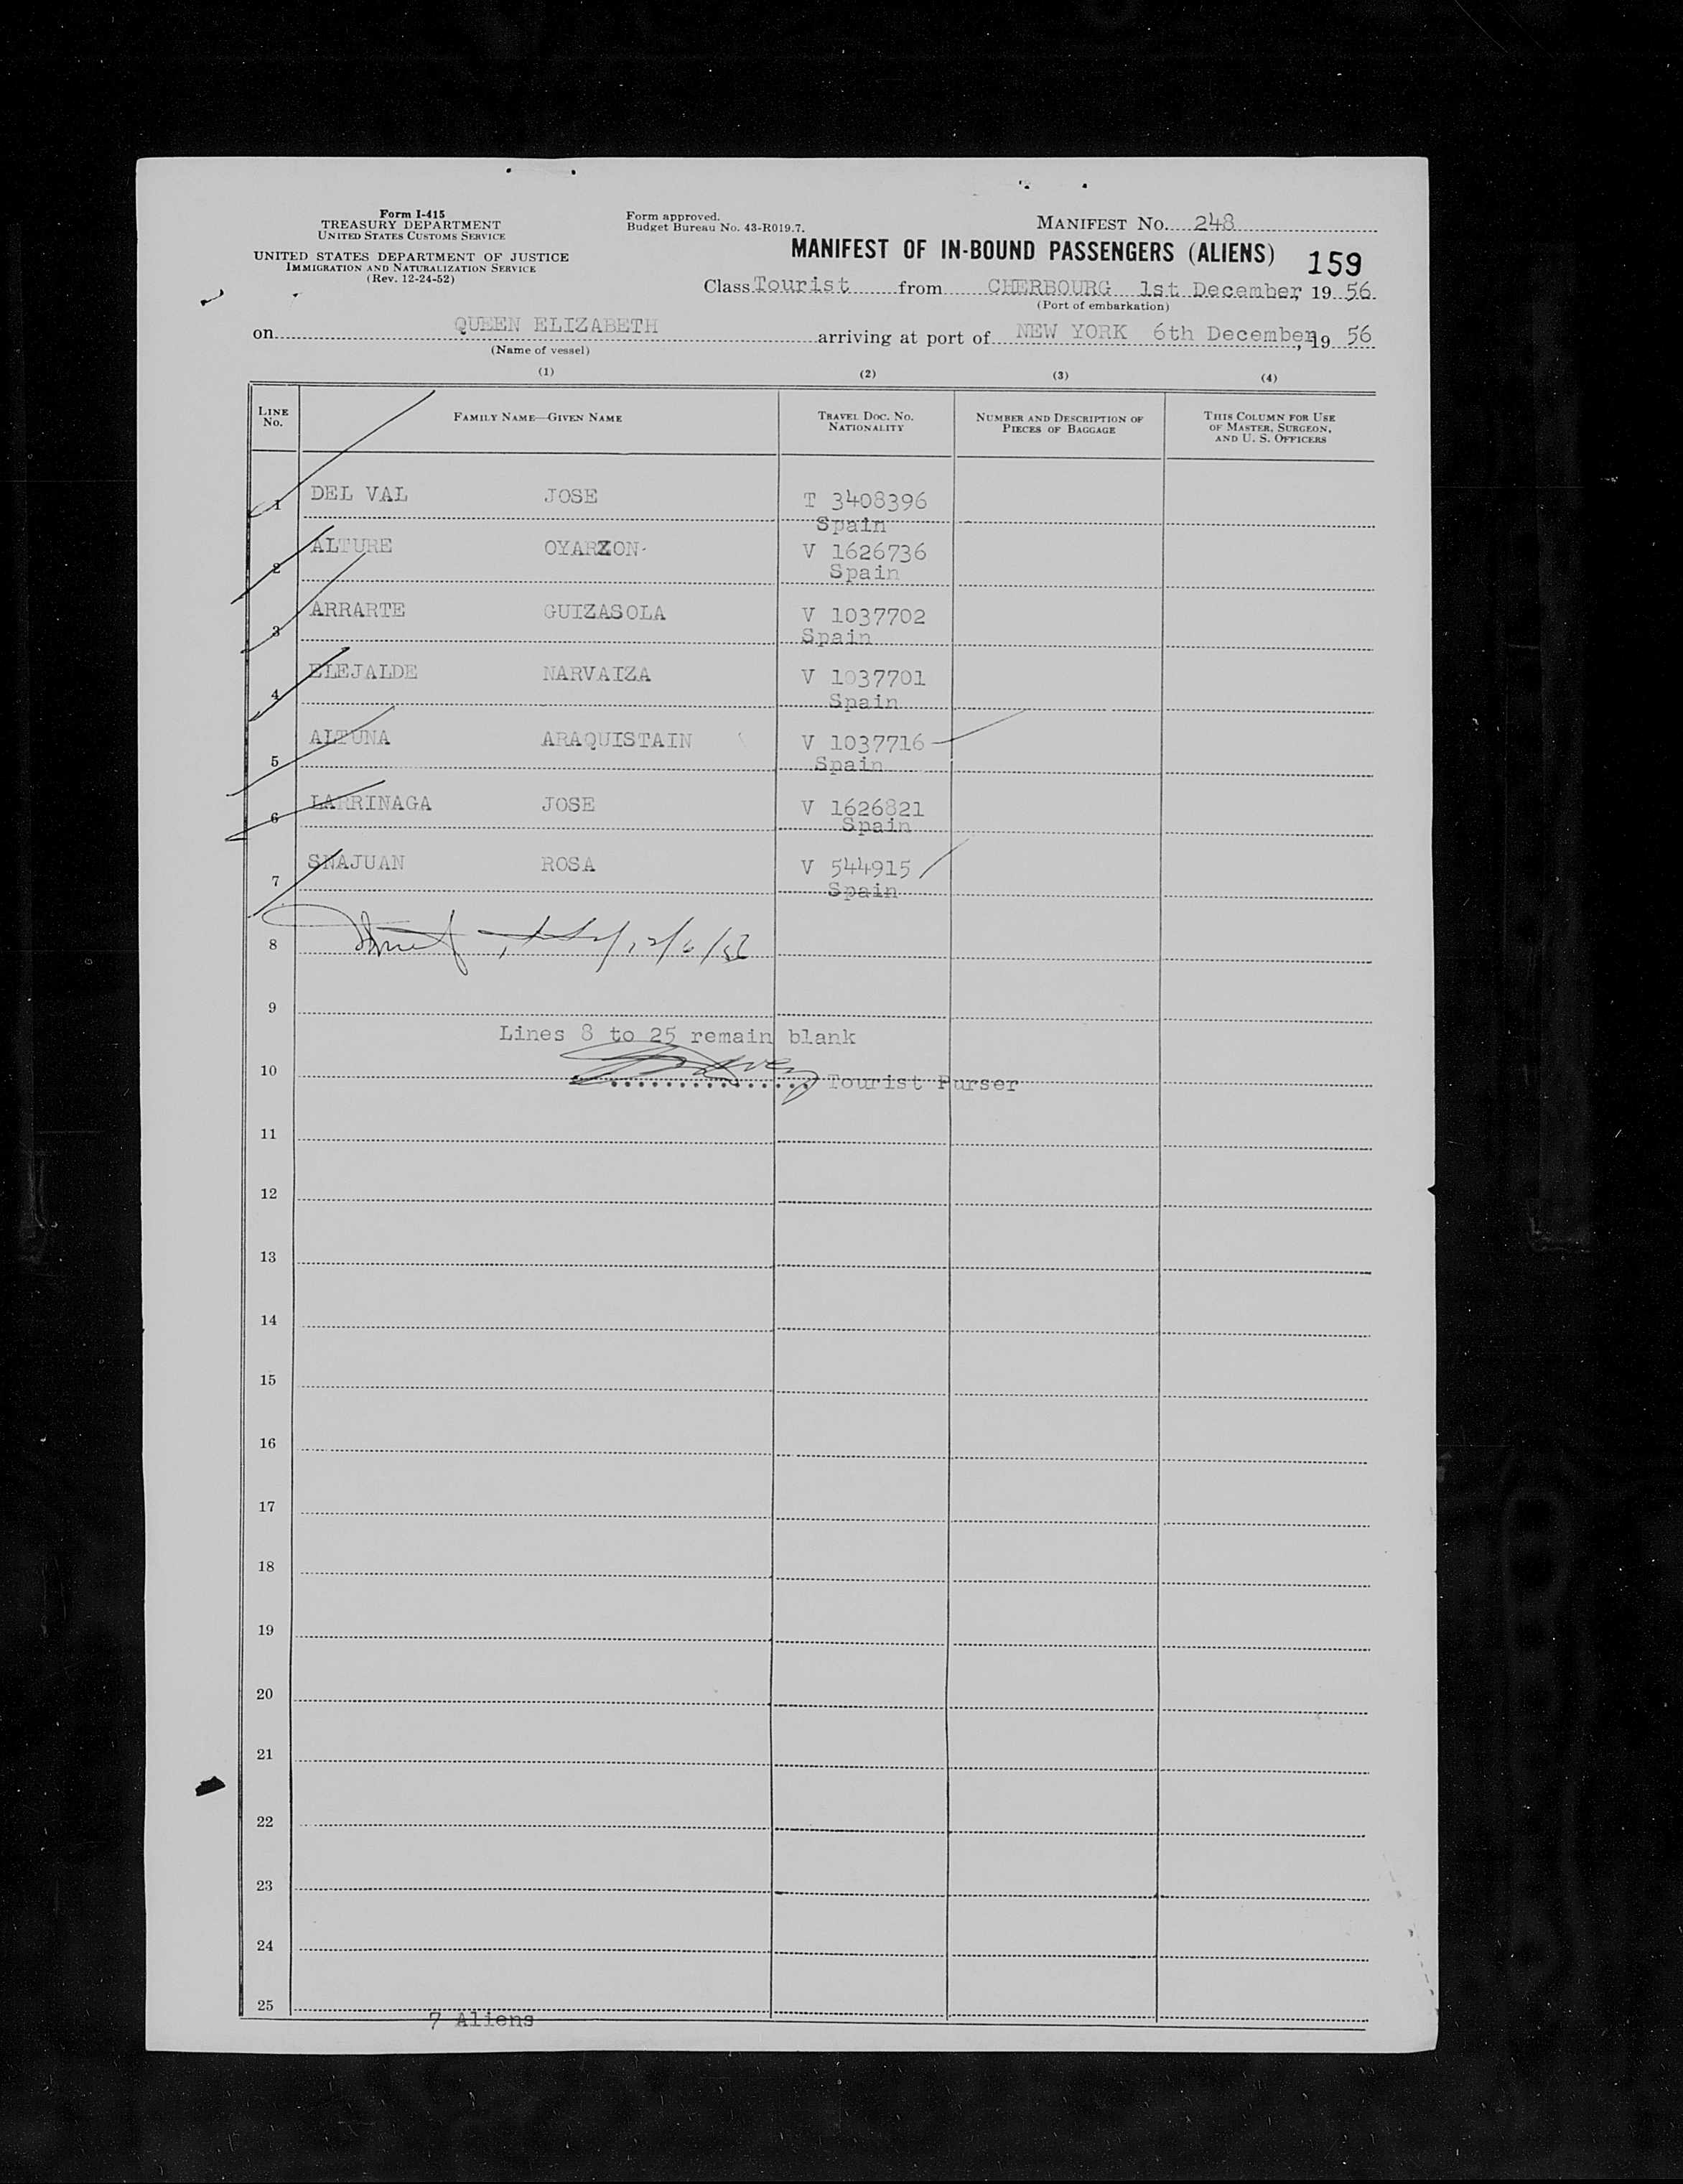 Form I-415
TREASURY DEPARTMENT
UNITED STATES CUSTOMS SERVICE
UNITED STATES DEPARTMENT OF JUSTICE
IMMIGRATION AND NATURALIZATION SERVICE
(Rev. 12-24-52)
Form approved.
Budget Bureau No. 43-R019.7.
MANIFEST NO. 248
MANIFEST OF IN-BOUND PASSENGERS (ALIENS) 159
Class Tourist from CHERBOURG 1st December, 19 56
(Port of embarkation)
on QUEEN ELIZABETH arriving at port of NEW YORK 6th December, 19 56
(Name of vessel)
(1) (2) (3) (4)
LINE NO. FAMILY NAME—GIVEN NAME TRAVEL DOC. NO. NATIONALITY NUMBER AND DESCRIPTION OF PIECES OF BAGGAGE THIS COLUMN FOR USE OF MASTER, SURGEON, AND U. S. OFFICERS
1 DEL VAL JOSE T 3408396
Spain
2 ALTURE OYARZON V 1626736
Spain
3 ARRARTE GUIZASOLA V 1037702
Spain
4 ELEJALDE NARVAIZA V 1037701
Spain
5 ALTUNA ARAQUISTAIN V 1037716
Spain
6 LARRINAGA JOSE V 1626821
Spain
7 SNAJUAN ROSA V 544915
Spain
8 12/6/56
9
Lines 8 to 25 remain blank
10 Tourist Purser
11
12
13
14
15
16
17
18
19
20
21
22
23
24
25
7 Aliens